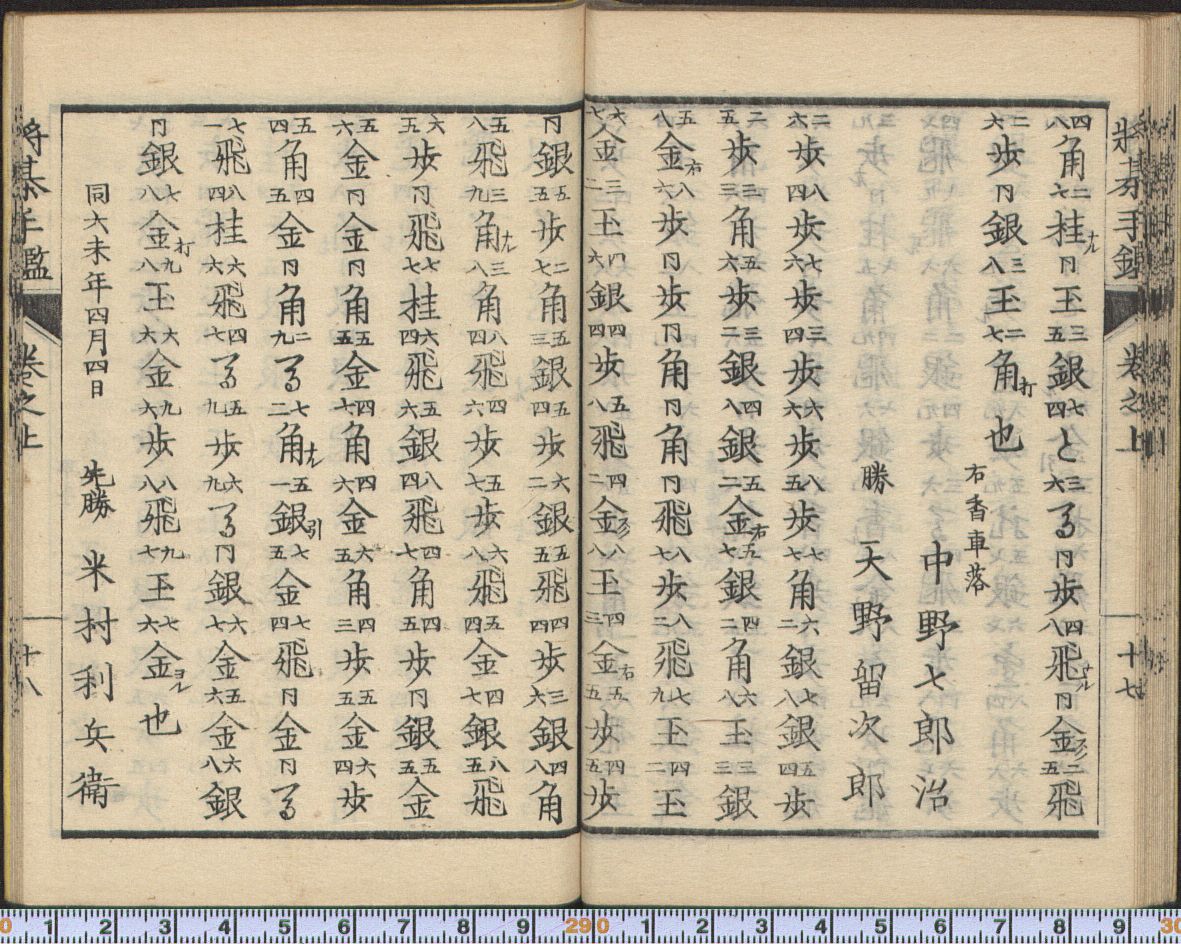 将棊手鑑 巻之上 十七
四八角 二七桂ナル 同玉 三五銀 七四と 三六馬 同歩 四八飛ナル 同金スグ 二五飛
二六歩 同銀 三八玉 二七角打也
右香車落
中野七郎治
勝 天野留次郎
二六歩 八四歩 七六歩 三四歩 六六歩 八五歩 七七角 六二銀 七八銀 五四歩
二五歩 三三角 五六歩 三二銀 四八銀 五二金右 五七銀 四二角 六八玉 三三銀
五八金右 八六歩 同歩 同角 同角 同飛 八七歩 八三飛 七九玉 四二玉
六七金 三二玉 四六銀 四四歩 五八飛 四二金スグ 八八玉 四三金右 五五歩 四五歩
同銀 五五歩 二七角 五三銀 五四歩 六二銀 五五飛 四四歩 三六銀 四八角
五八飛 三九角ナル 三八角 八四飛 四六歩 五七歩 六八飛 五四金 四七銀 八五飛
六五歩 同飛 七七桂 六四飛 五六銀 八四飛 四七角 四五歩 同銀 五五金
五六金 同金 同角 五五金 四七角 四六金 六五角 四三歩 五五歩 六四歩
五四角 四五金 同角 二九馬 七二角ナル 五一銀引 七五金 七四飛 同金 同馬
七一飛 八四桂 六六飛 四七馬 五九歩 六九馬 同銀 六七金 五六金 六八銀
同銀 七八金打 九八玉 六六金 九六歩 八八飛 九七玉 七六金ヨル也
同六未年四月四日
先勝 米村利兵衛
将棊手鑑 巻之上 十八